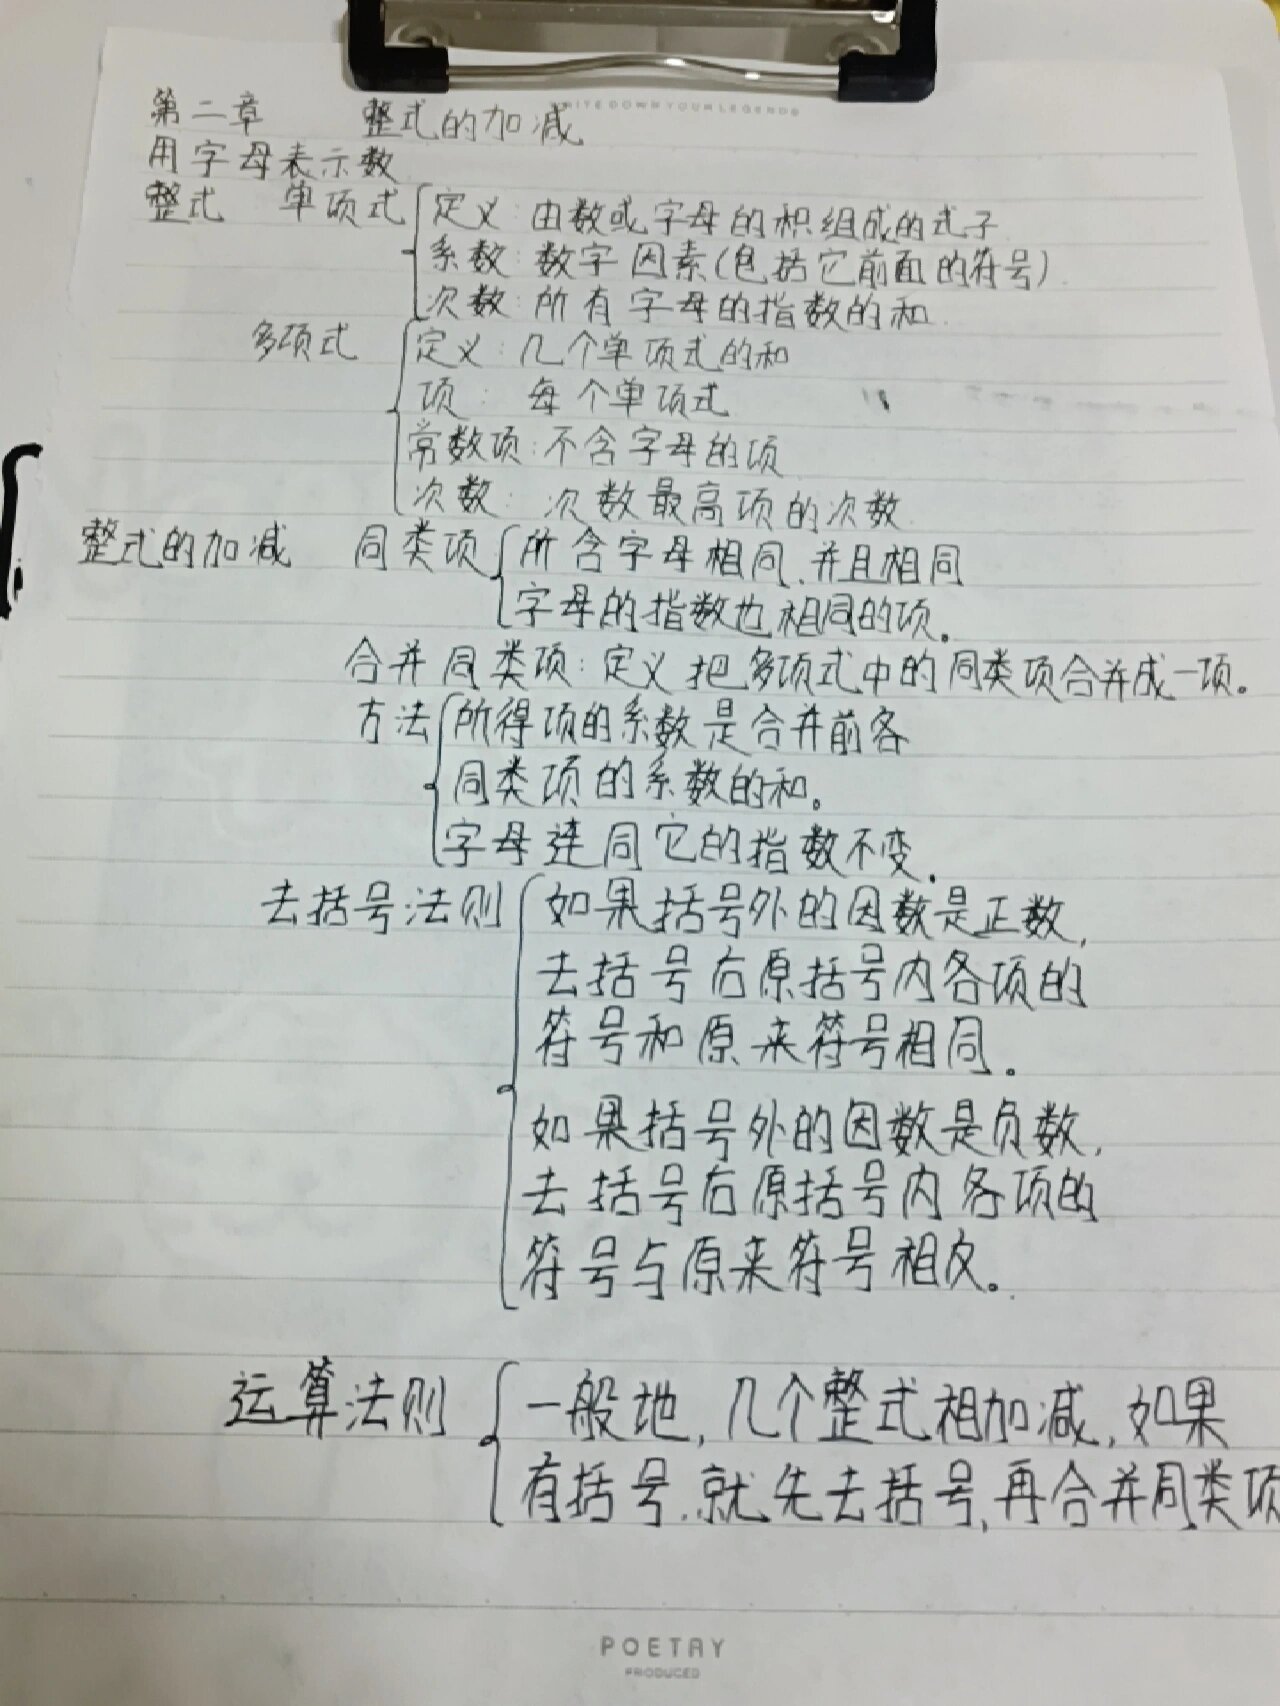 WRITE DOWN YOUR LEGENDS
第二章 整式的加减
用字母表示数
整式 单项式 定义:由数或字母的积组成的式子
系数:数字因素(包括它前面的符号)
次数:所有字母的指数的和
多项式 定义:几个单项式的和
项: 每个单项式
常数项:不含字母的项
次数: 次数最高项的次数
整式的加减 同类项 所含字母相同,并且相同
字母的指数也相同的项。
合并同类项:定义 把多项式中的同类项合并成一项。
方法 所得项的系数是合并前各
同类项的系数的和。
字母连同它的指数不变.
去括号法则 如果括号外的因数是正数,
去括号后原括号内各项的
符号和原来符号相同。
如果括号外的因数是负数,
去括号后原括号内各项的
符号与原来符号相反。
运算法则 一般地,几个整式相加减,如果
有括号,就先去括号,再合并同类项
POETRY
PRODUCED